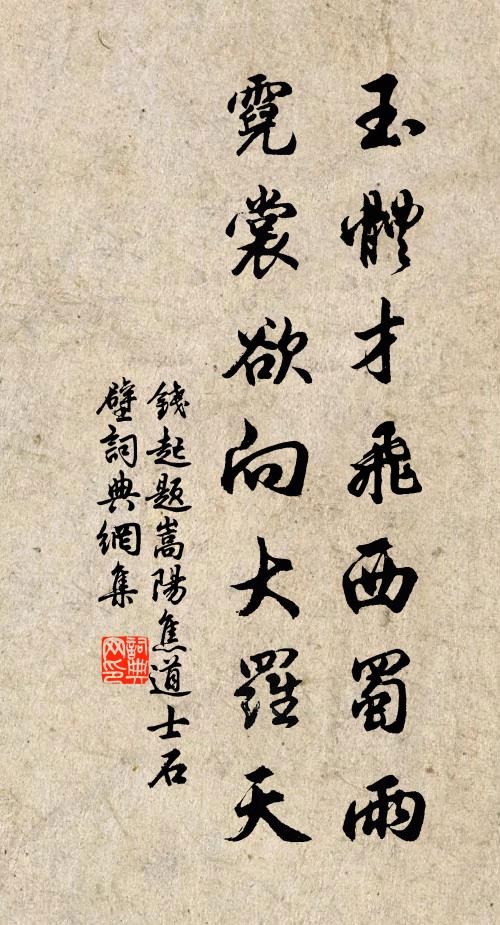 玉體才飛西蜀雨
霓裳欲向大羅天
錢起題嵩陽焦道士石
壁詞典網集
詞典
網印